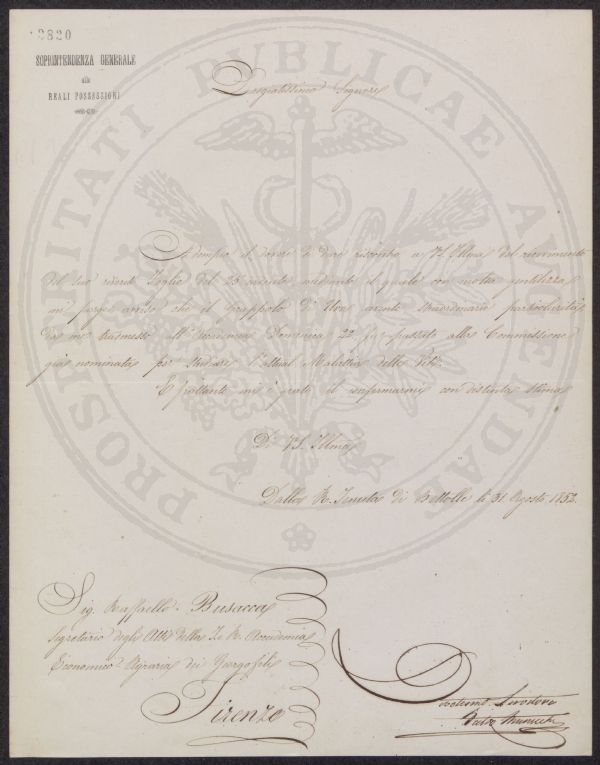 2820
SOPRINTENDENZA GENERALE
alle
REALI POSSESSIONI
Pregiatissimo Signore
Adempio al dovere di dare riscontro a V.S. Illma del ricevimento
del suo Foglio del 25 mediante il quale con molta gentilezza
mi porge avviso che il Grappolo di Uva avente straordinaria particolarità
da me trasmesso all' Accademia Domenica 22 passato alla Commissione
già nominata per studiare l'attual Malattia delle Viti.
E frattanto mi è grato il confermarmi con distinta stima
Di V.S. Illma
Dalla R. Tenuta di Bettolle li 31 Agosto 1852.
Sig. Raffaello Busacca
Segretario degli Atti della I. e R. Accademia
Economico-Agraria dei Georgofili
Firenze
Devotissimo Servitore
Pietro
PROSPERITATI PUBLICAE AUGENDAE